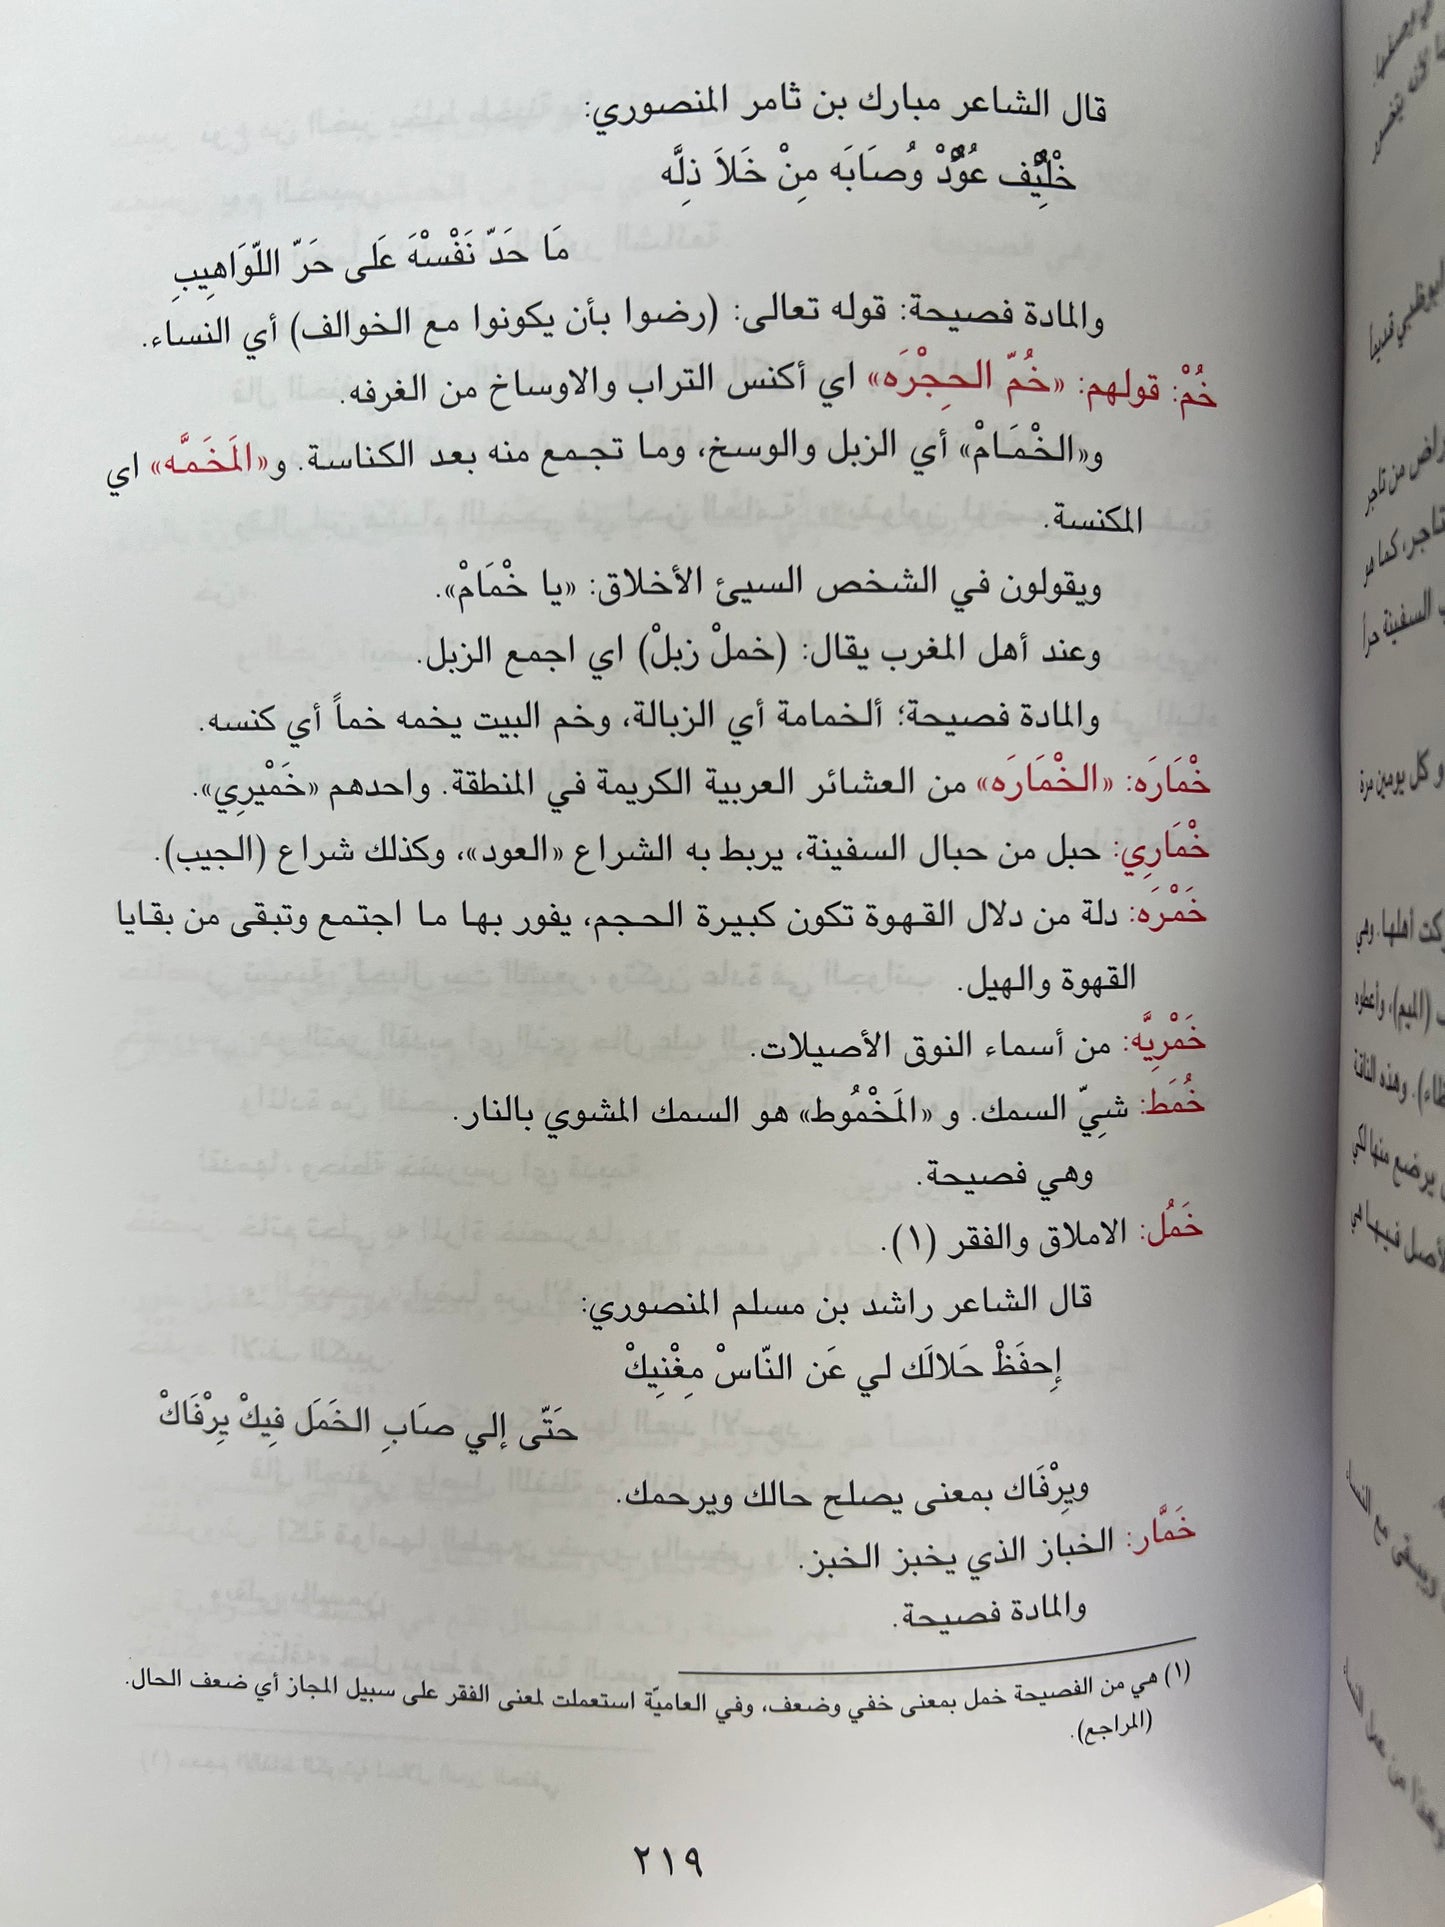 قال الشاعر مبارك بن ثامر المنصوري:
خْلِيْف عُوْدْ وُصَابَه مِنْ خَلاَ ذِلَّه
مَا حَدّ نَفْسْهَ عَلَى حَرّ اللّوَاهِيبِ
والمادة فصيحة: قوله تعالى: (رضوا بأن يكونوا مع الخوالف) أي النساء.
خُمْ: قولهم: «خُمّ الحِجْرَه» اي أكنس التراب والاوساخ من الغرفه.
و«الخْمَامْ» أي الزبل والوسخ، وما تجمع منه بعد الكناسة. و«المَخَمَّه» اي
المكنسة.
ويقولون في الشخص السيئ الأخلاق: «يا خْمَامْ».
وعند أهل المغرب يقال: (خملْ زبلْ) اي اجمع الزبل.
والمادة فصيحة؛ ألخمامة أي الزبالة، وخم البيت يخمه خماً أي كنسه.
خْمَارَه: «الخْمَارَه» من العشائر العربية الكريمة في المنطقة. واحدهم «خَمْيرِي».
خْمَارِي: حبل من حبال السفينة، يربط به الشراع «العود»، وكذلك شراع (الجيب).
خَمْرَه: دلة من دلال القهوة تكون كبيرة الحجم، يفور بها ما اجتمع وتبقى من بقايا
القهوة والهيل.
خَمْرِيَّه: من أسماء النوق الأصيلات.
خُمَط: شيِّ السمك. و «المَخْمُوط» هو السمك المشوي بالنار.
وهي فصيحة.
خَمُل: الاملاق والفقر (١).
قال الشاعر راشد بن مسلم المنصوري:
إِحفَظْ حَلالَك لي عَن النّاسْ مِغْنِيكْ
حَتّى إلي صابِ الخَمَل فِيكْ يِرْفَاكْ
ويِرْفَاك بمعنى يصلح حالك ويرحمك.
خَمَّار: الخباز الذي يخبز الخبز.
والمادة فصيحة.
(١) هي من الفصيحة خمل بمعنى خفي وضعف، وفي العاميّة استعملت لمعنى الفقر على سبيل المجاز أي ضعف الحال.
(المراجع).
٢١٩